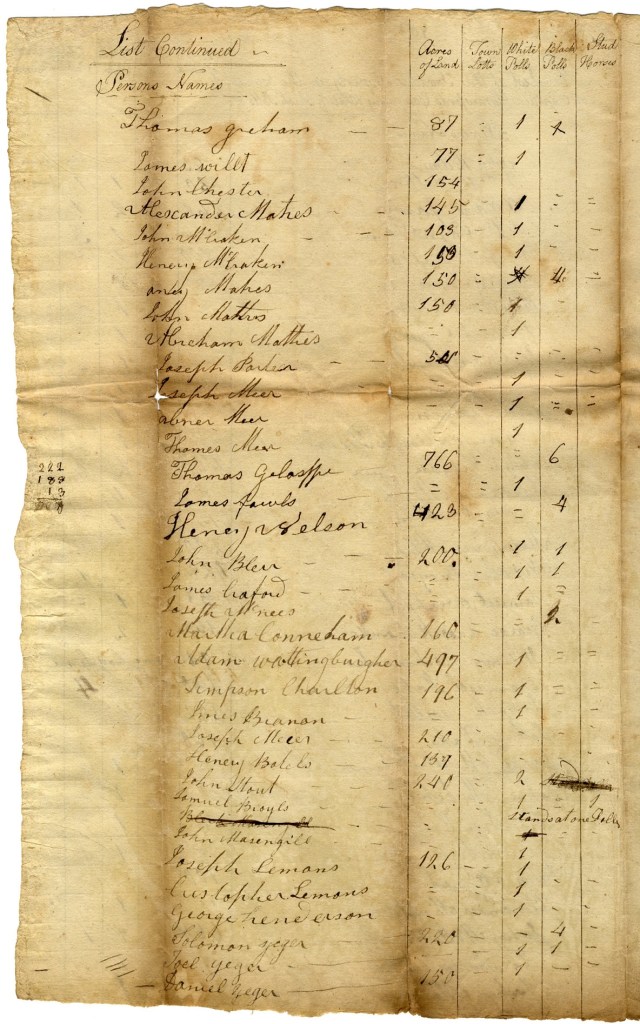 List Continued
Acres of Land Town Lotts White Polls Black Polls Stud Horses
Persons Names
Thomas Greham — — 87 = 1
James Willt 77 = 1
John Chester 154
Alexander Mathes — 145 - 1 = =
John McCraken — — 103 - 1 - -
Henery McCraken 153 - 1
andy Mathes 150 = 4 =
John Mathes 150 - 1
Abreham Mathes 1
Joseph Parker = = =
Joseph Meer - 1 = =
abner Meer - 1 = =
Thomes Meer 1
Thomas Gelaspe 766 = = 6
James fowls = = 1
Henery Nelson 423 - = 4
John Bleer — 200 1 1
James Craford — 1 1
Joseph McNees 1 =
Martha Conneham 160 2
Adam Wattingburgher 497 - 1 =
Simpson Charlton 196 - 1 -
James Branon — = 1
Joseph Meeer — 210 = =
Henery Bolels 137
John Stout 240 - 2
Samuel Broyls 1 - 1
Stands at one
John Masengill
Joseph Lemons 126 - 1
Cristopher Lemons = = 1
George Henderson = 1
Solomon Yeger 220 - - 4
Joel Yeger — = - 1 1
Daniel Yeger 150 - 1 -
222
183
13